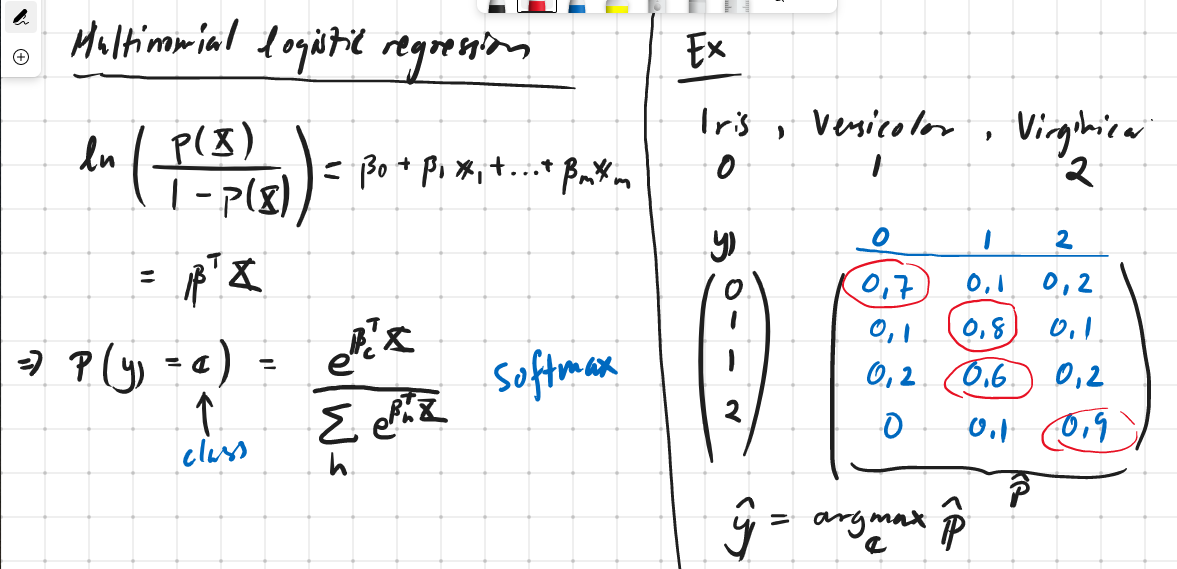 Multinomial logistic regression
ln ( P(X) / 1 - P(X) ) = β0 + β1 x1 + ... + βm xm
= β^T X
=> P(y = c) = e^(βc^T X) / Σ_h e^(βh^T X)
softmax
class
Ex
Iris, Versicolor, Virginica
0 1 2
y
0
1
1
2
0 1 2
0,7 0,1 0,2
0,1 0,8 0,1
0,2 0,6 0,2
0 0,1 0,9
P̂
ŷ = argmax_c P̂